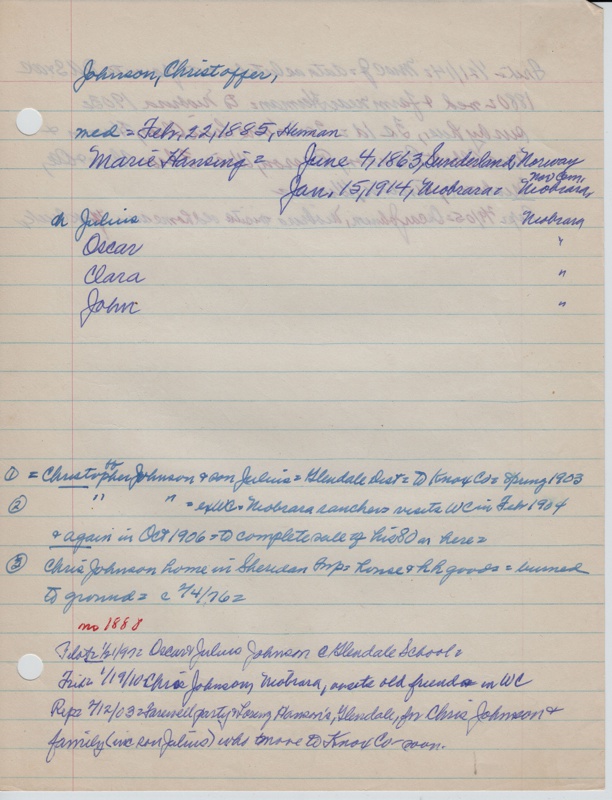 Johnson, Christoffer,
med = Feb, 22, 1885, Herman
"Marie Hansing" = June 4, 1863, Sunderland, Norway
Jan, 15, 1914, Niobrara = Niobrara,
Nor Cem,
ch Julius Niobrara
Oscar "
Clara "
John "
① = Christopher Johnson & son Julius = Glendale Dist = to Knox Co = Spring 1903
ff
② " " = exWC = Niobrara ranchers visits WC in Feb 1904
& again in Oct 1906 = to complete sale of his 80 in here =
③ Chris Johnson home in Sheridan Twp = house & hh goods = burned
to ground = c 2/4/76 =
no 1888
Pilot = 1/21/97 = Oscar & Julius Johnson c Glendale School =
1/19/10 Chris Johnson, Niobrara, visits old friends in WC
Rep = 2/12/03 = Farewell party @ Lorenz Hanson's, Glendale, for Chris Johnson &
family (inc son Julius) who move to Knox Co soon.